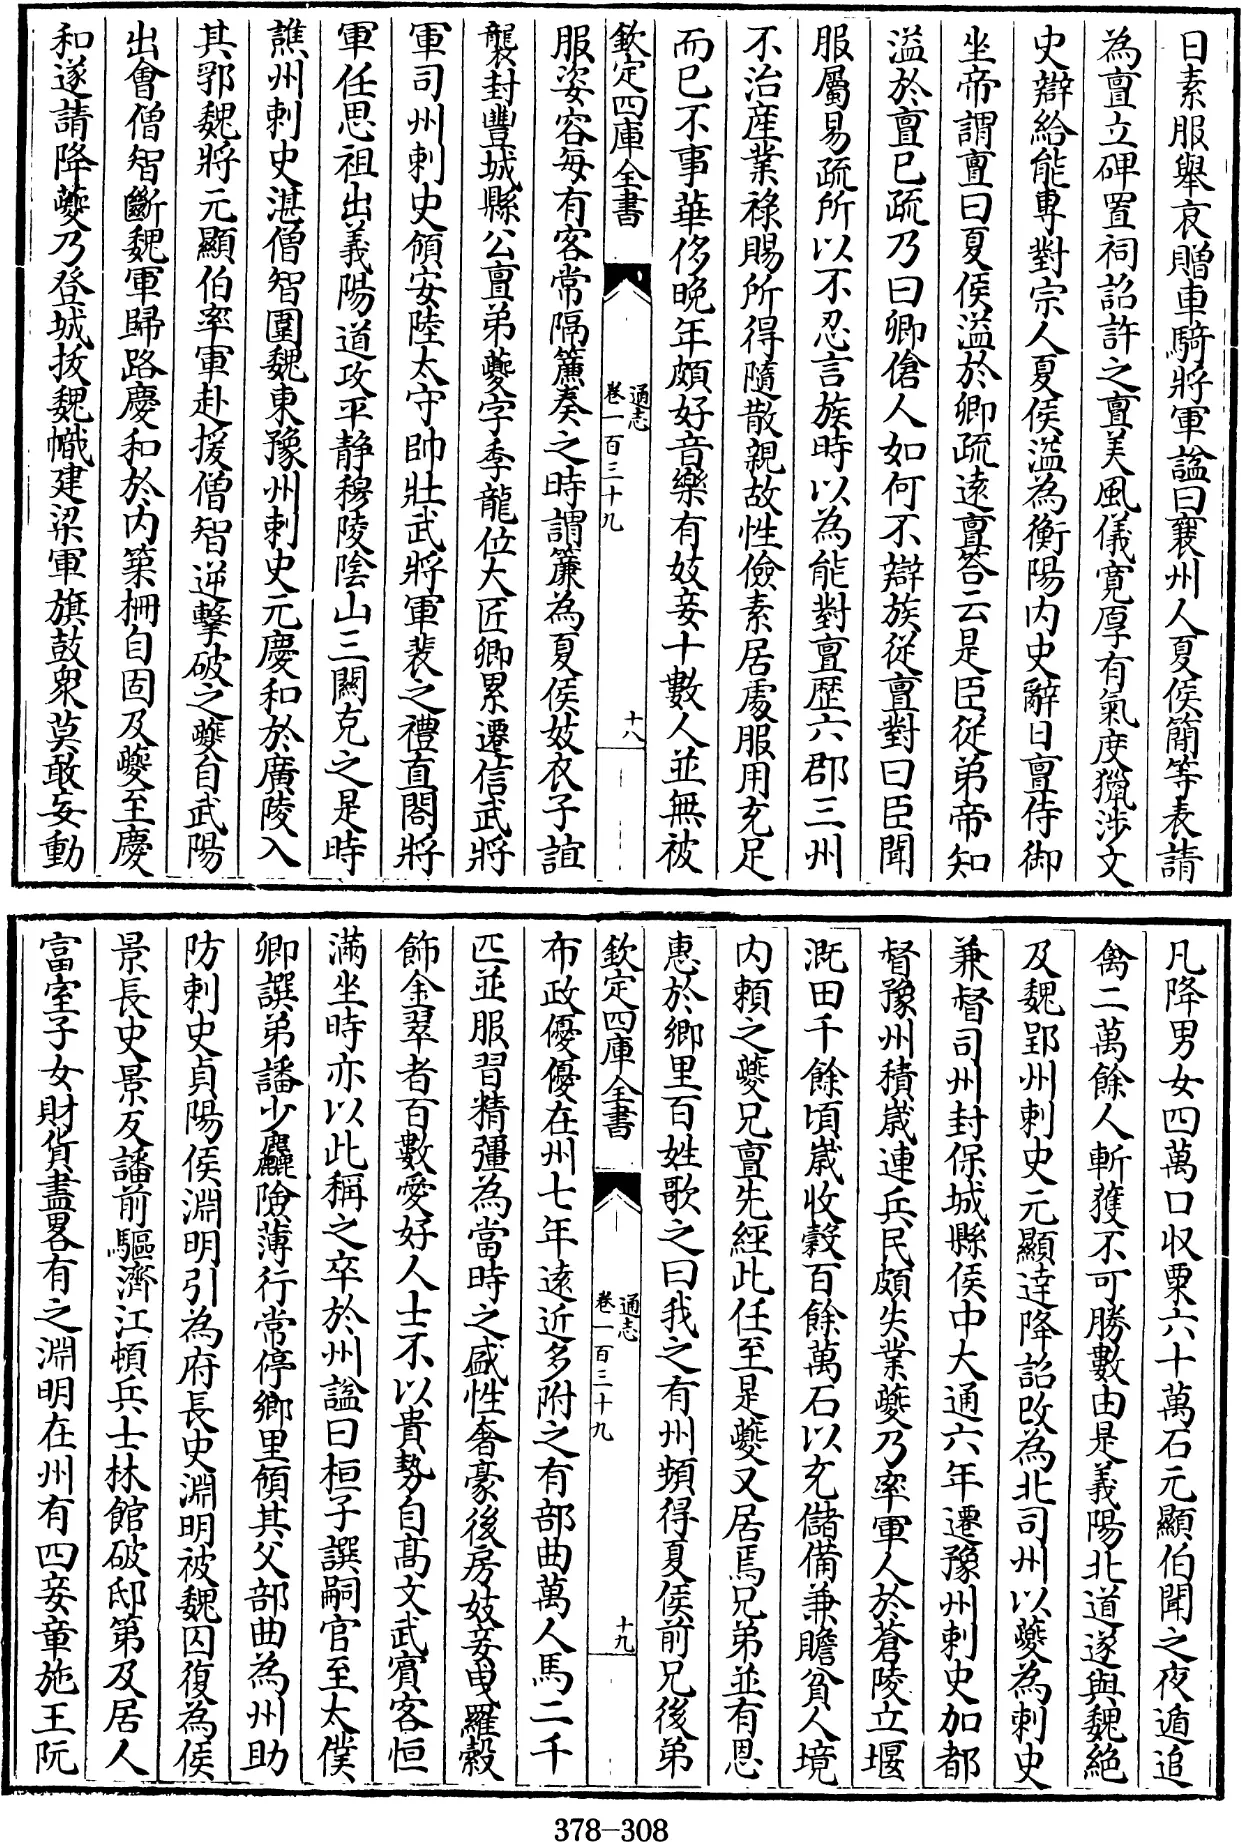 日素服舉哀贈車騎將軍諡曰襄州人夏侯簡等表請
為亶立碑置祠詔許之亶美風儀寛厚有氣度獵渉文
史辯給能專對宗人夏侯溢為衡陽内史辭日亶侍御
坐帝謂亶曰夏侯溢於卿疏逺亶答云是臣從弟帝知
溢於亶已疏乃曰卿傖人如何不辯族從亶對曰臣聞
服屬易疏所以不忍言族時以為能對亶歴六郡三州
不治産業祿賜所得隨散親故性儉素居處服用充足
而已不事華侈晚年頗好音樂有妓妾十數人並無被
欽定四庫全書
通志
卷一百三十九
十八
服姿容每有客常隔簾奏之時謂簾為夏侯妓衣子誼
襲封豐城縣公亶弟夔字季龍位大匠卿累遷信武將
軍司州刺史領安陸太守帥壯武將軍裴之禮直閤將
軍任思祖出義陽道攻平靜穆陵陰山三關克之是時
譙州刺史湛僧智圍魏東豫州刺史元慶和於廣陵入
其郛魏將元顯伯率軍赴援僧智逆擊破之夔自武陽
出會僧智斷魏軍歸路慶和於内築柵自固及夔至慶
和遂請降夔乃登城拔魏幟建梁軍旗鼓衆莫敢妄動
凡降男女四萬口收粟六十萬石元顯伯聞之夜遁追
禽二萬餘人斬獲不可勝數由是義陽北道遂與魏絶
及魏郢州刺史元顯逹降詔改為北司州以夔為刺史
兼督司州封保城縣侯中大通六年遷豫州刺史加都
督豫州積嵗連兵民頗失業夔乃率軍人於蒼陵立堰
溉田千餘頃嵗收穀百餘萬石以充儲備兼贍貧人境
内頼之夔兄亶先經此任至是夔又居焉兄弟並有恩
惠於鄉里百姓歌之曰我之有州頻得夏侯前兄後弟
欽定四庫全書
通志
卷一百三十九
十九
布政優優在州七年逺近多附之有部曲萬人馬二千
匹並服習精彊為當時之盛性奢豪後房妓妾曳羅縠
飾金翠者百數愛好人士不以貴勢自髙文武賓客恒
滿坐時亦以此稱之卒於州諡曰桓子譔嗣官至太僕
卿譔弟譒少麤險薄行常停鄉里領其父部曲為州助
防刺史貞陽侯淵明引為府長史淵明被魏囚復為侯
景長史景反譒前驅濟江頓兵士林館破邸第及居人
富室子女財貨盡畧有之淵明在州有四妾章施王阮
378-308